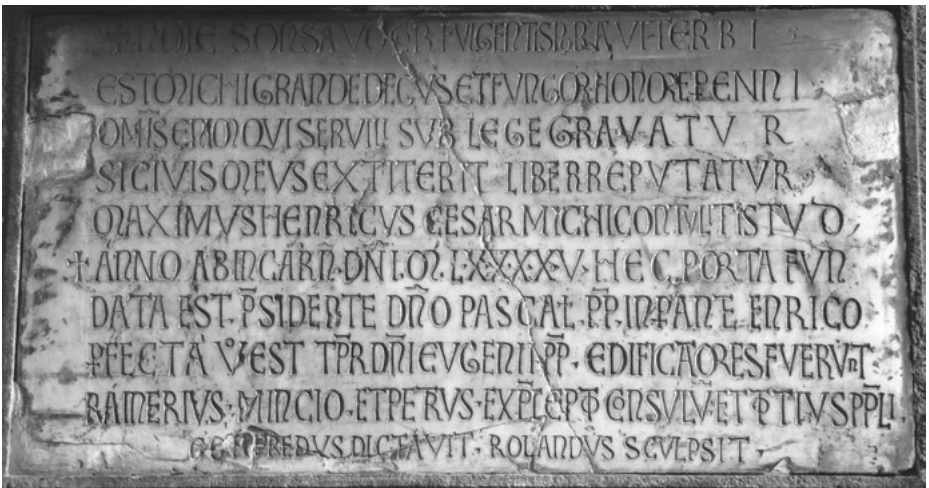 + NOIE SONSA VOCOR FVLGENTIS PORTA VITERBI
EST MICHI GRANDE DECVS ET FVNGOR HONORE PERENNI
OMIS̄ ENIM QVI SERVILI SVB LEGE GRAVATVR
SI CIVIS MEVS EXTITERIT LIBER REPVTATVR
MAXIMVS HENRICVS CESAR MICHI CONTVLIT ISTVD
+ ANNO AB INCARN̄·DN̄I·M̄·LXXXXV·HEC·PORTA FVN
DATA EST·P̄SIDENTE DN̄O PASCAL·P̄P·INPANTE·ENRICO
ꝑFECTA V̊ EST TP̄R DN̄I EVGENII P̄P·EDIFICAORES FVERVNT
RAINERIVS·MINCIO·ET PETRVS· CŌNSVLV·ET TOTIVS P̄PLI
DICTAVIT·ROLANDVS SCVLPSIT